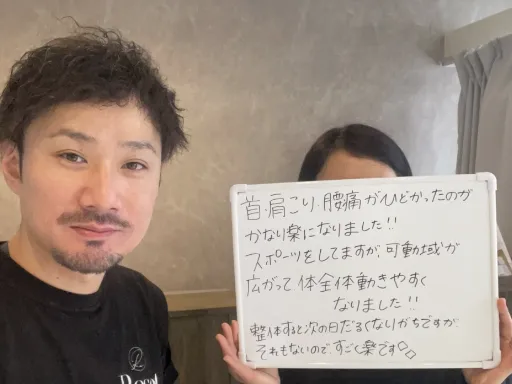 首・肩こり、腰痛がひどかったのが
かなり楽になりました!!
スポーツをしてますが、可動域が
広がって体全体動きやすく
なりました!!
整体すると次の日だるくなりがちですが、
それもないので、すごく楽です